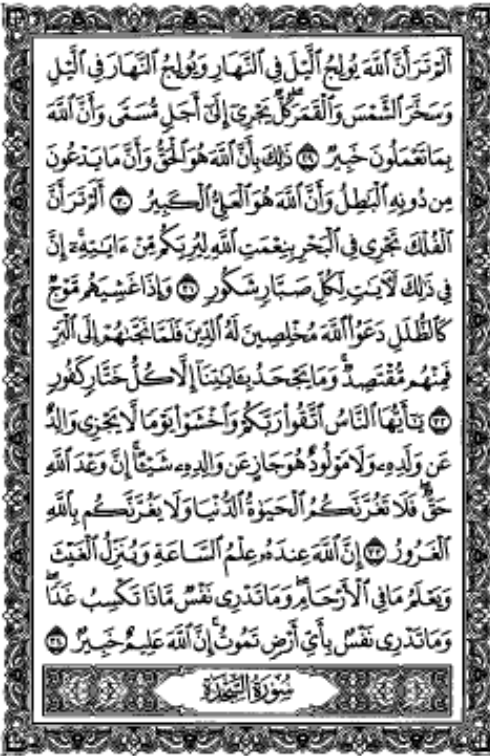 أَلَمْ تَرَ أَنَّ ٱللَّهَ يُولِجُ ٱلَّيْلَ فِي ٱلنَّهَارِ وَيُولِجُ ٱلنَّهَارَ فِي ٱلَّيْلِ
وَسَخَّرَ ٱلشَّمْسَ وَٱلْقَمَرَ كُلٌّ يَجْرِيٓ إِلَىٰٓ أَجَلٍ مُّسَمًّى وَأَنَّ ٱللَّهَ
بِمَا تَعْمَلُونَ خَبِيرٌ ٢٩ ذَٰلِكَ بِأَنَّ ٱللَّهَ هُوَ ٱلْحَقُّ وَأَنَّ مَا يَدْعُونَ
مِن دُونِهِ ٱلْبَٰطِلُ وَأَنَّ ٱللَّهَ هُوَ ٱلْعَلِيُّ ٱلْكَبِيرُ ٣٠ أَلَمْ تَرَ أَنَّ
ٱلْفُلْكَ تَجْرِي فِي ٱلْبَحْرِ بِنِعْمَتِ ٱللَّهِ لِيُرِيَكُم مِّنْ ءَايَٰتِهِۦٓ إِنَّ
فِي ذَٰلِكَ لَءَايَٰتٍ لِّكُلِّ صَبَّارٍ شَكُورٍ ٣١ وَإِذَا غَشِيَهُم مَّوْجٌ
كَٱلظُّلَلِ دَعَوُا۟ ٱللَّهَ مُخْلِصِينَ لَهُ ٱلدِّينَ فَلَمَّا نَجَّىٰهُمْ إِلَى ٱلْبَرِّ
فَمِنْهُم مُّقْتَصِدٌ ۚ وَمَا يَجْحَدُ بِـَٔايَٰتِنَآ إِلَّا كُلُّ خَتَّارٍ كَفُورٍ
٣٢ يَٰٓأَيُّهَا ٱلنَّاسُ ٱتَّقُوا۟ رَبَّكُمْ وَٱخْشَوْا۟ يَوْمًا لَّا يَجْزِي وَالِدٌ
عَن وَلَدِهِۦ وَلَا مَوْلُودٌ هُوَ جَازٍ عَن وَالِدِهِۦ شَيْـًٔا ۚ إِنَّ وَعْدَ ٱللَّهِ
حَقٌّ ۖ فَلَا تَغُرَّنَّكُمُ ٱلْحَيَوٰةُ ٱلدُّنْيَا وَلَا يَغُرَّنَّكُم بِٱللَّهِ
ٱلْغَرُورُ ٣٣ إِنَّ ٱللَّهَ عِندَهُۥ عِلْمُ ٱلسَّاعَةِ وَيُنَزِّلُ ٱلْغَيْثَ
وَيَعْلَمُ مَا فِي ٱلْأَرْحَامِ ۖ وَمَا تَدْرِي نَفْسٌ مَّاذَا تَكْسِبُ غَدًا ۖ
وَمَا تَدْرِي نَفْسٌۢ بِأَيِّ أَرْضٍ تَمُوتُ ۚ إِنَّ ٱللَّهَ عَلِيمٌ خَبِيرٌۢ ٣٤
سُورَةُ السَّجْدَةِ